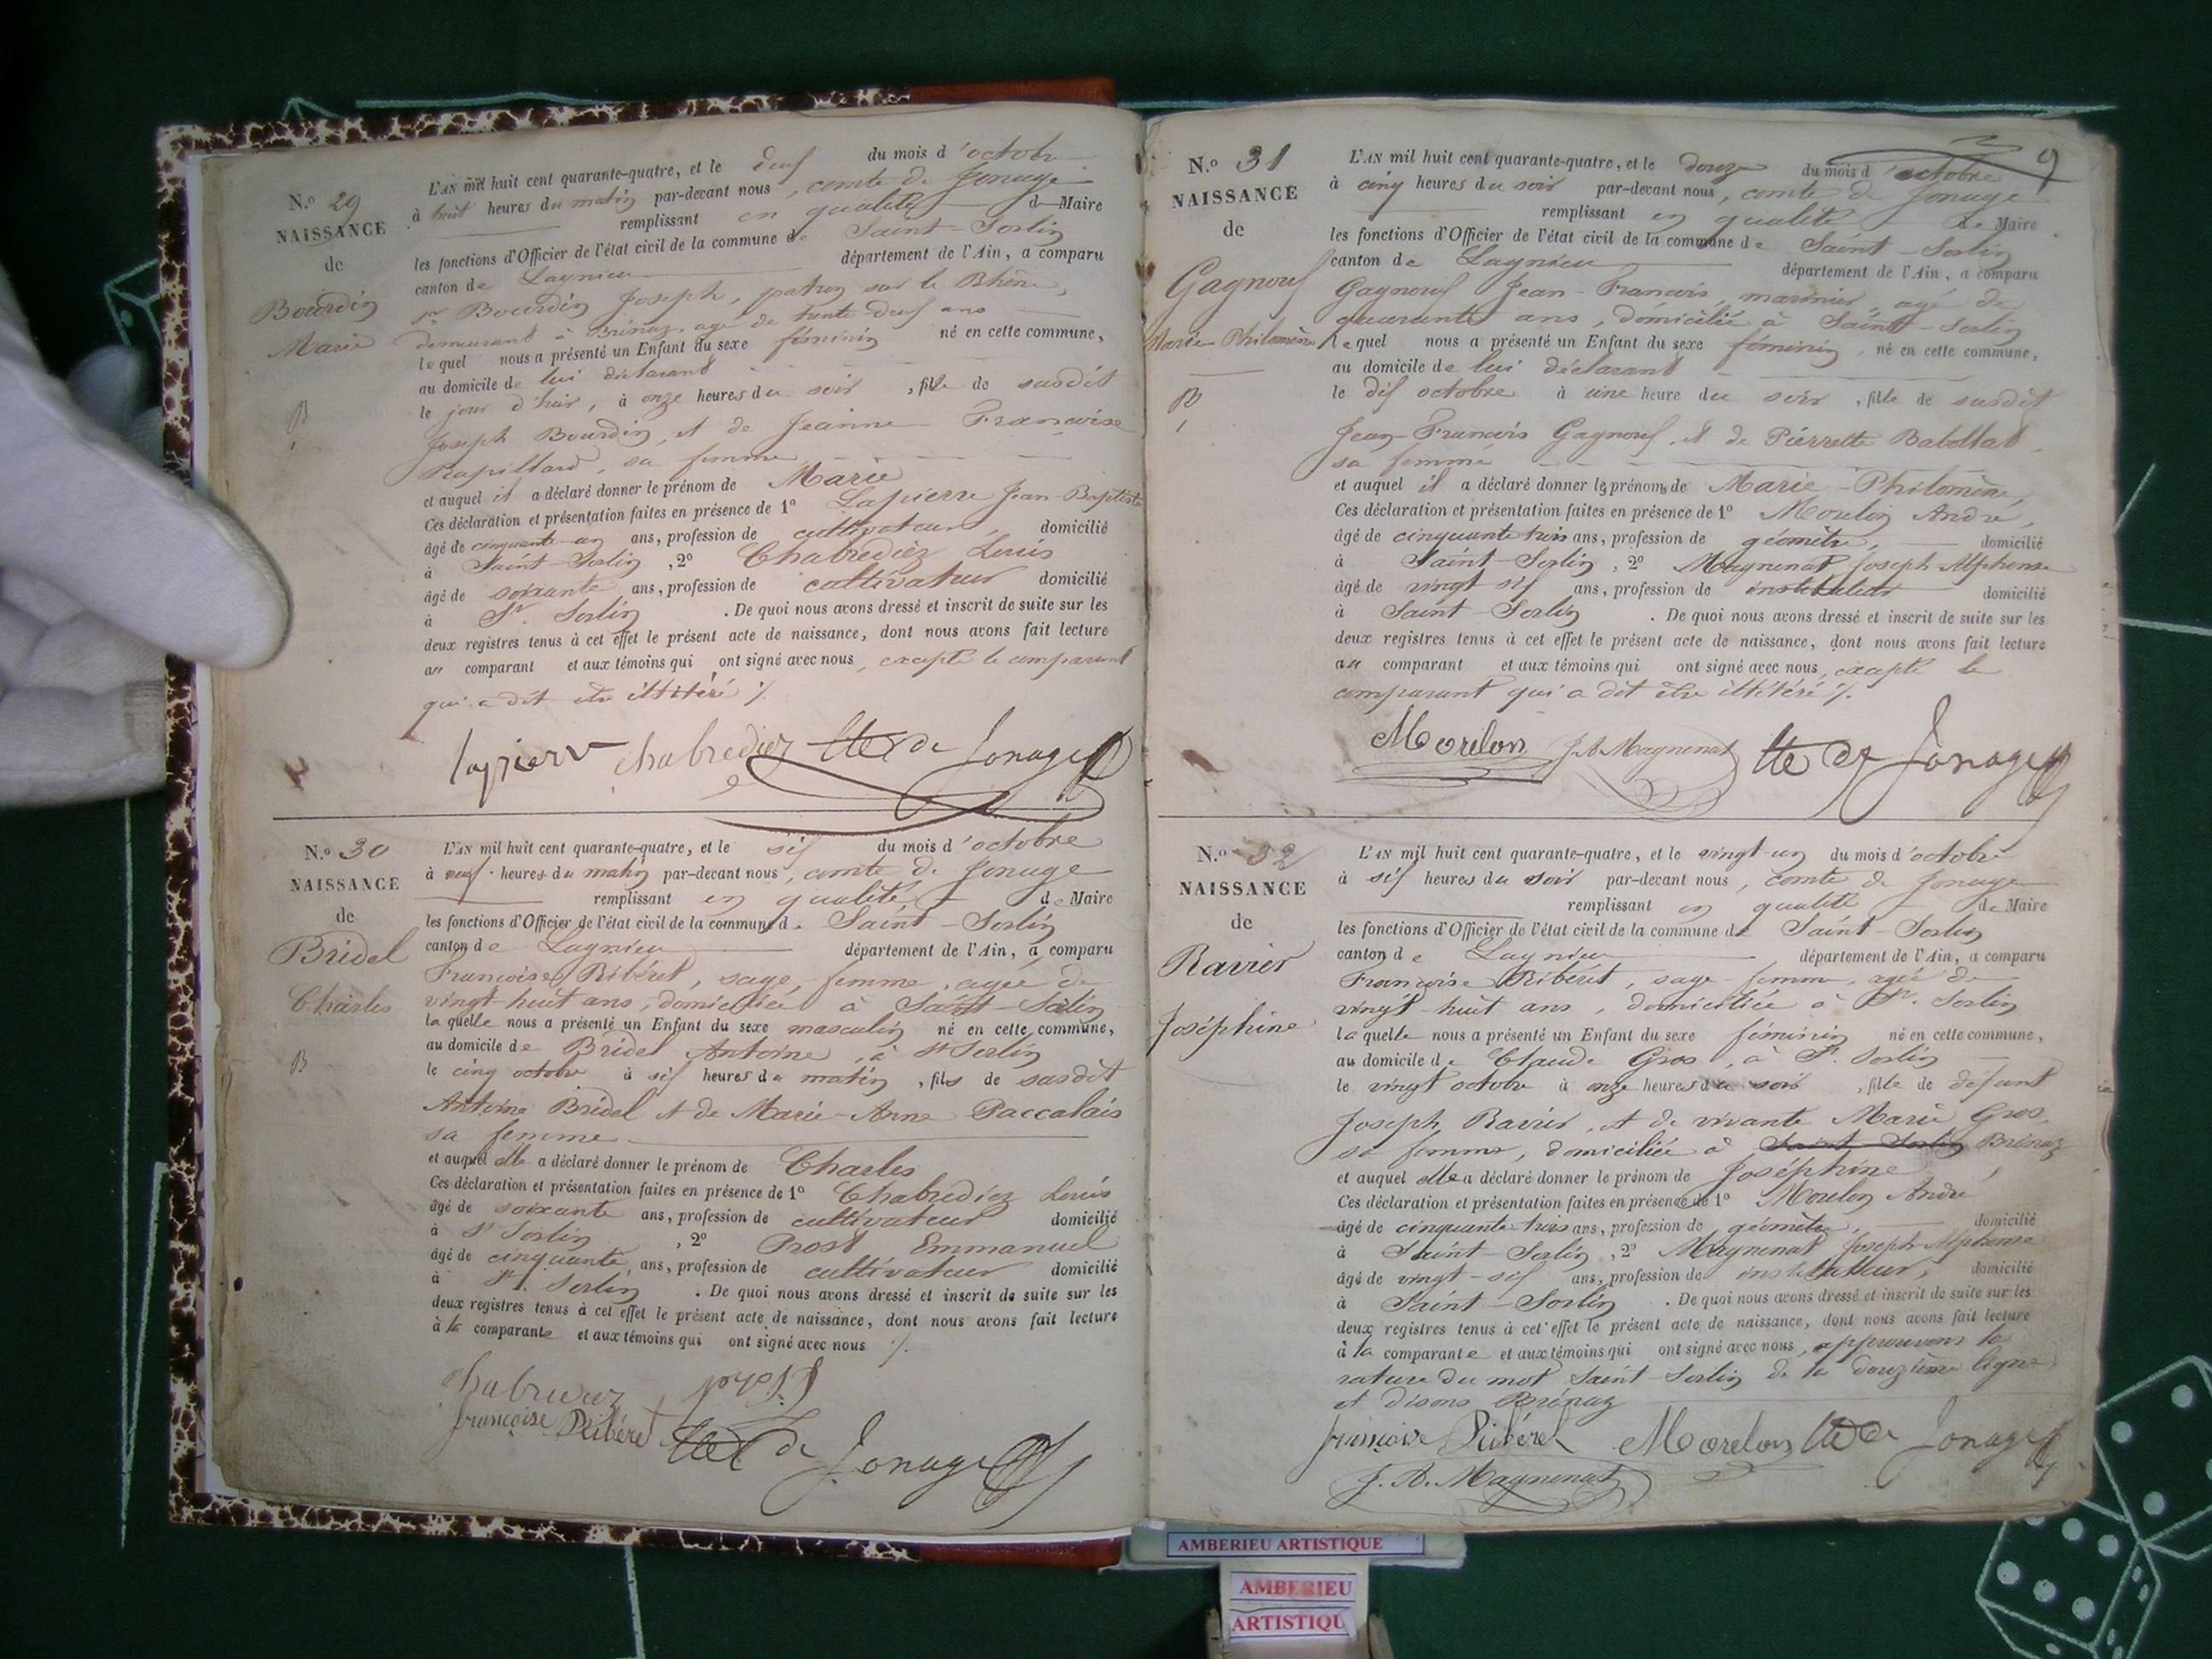 N.o 29
NAISSANCE
de
Bourdin
Marie
B
L'AN mil huit cent quarante-quatre, et le deux du mois d'octobre
à huit heures du matin par-devant nous, comte de Jonage
remplissant en qualité de Maire
les fonctions d'Officier de l'état civil de la commune de Saint-Sorlin
canton de Lagnieu département de l'Ain, a comparu
sr Bourdin Joseph, patron sur le Rhône,
demeurant à Brénaz, agé de trente-deux ans
lequel nous a présenté un Enfant du sexe féminin né en cette commune,
au domicile de lui déclarant
le jour d'hier, à onze heures du soir, fille de susdit
Joseph Bourdin, et de Jeanne Françoise
Rapillard, sa femme
et auquel il a déclaré donner le prénom de Marie
Ces déclaration et présentation faites en présence de 1o Lapierre Jean-Baptiste
âgé de cinquante-un ans, profession de cultivateur, domicilié
à Saint-Sorlin, 2o Chabrediez Louis
âgé de soixante ans, profession de cultivateur domicilié
à St. Sorlin. De quoi nous avons dressé et inscrit de suite sur les
deux registres tenus à cet effet le présent acte de naissance, dont nous avons fait lecture
au comparant et aux témoins qui ont signé avec nous, excepté le comparant
qui a dit etre illitéré ./.
lapierre chabrediez Cte de Jonage
N.o 30
NAISSANCE
de
Bridel
Charles
B
L'AN mil huit cent quarante-quatre, et le six du mois d'octobre
à neuf heures du matin par-devant nous, comte de Jonage
remplissant en qualité, de Maire
les fonctions d'Officier de l'état civil de la commune de Saint-Sorlin
canton de Lagnieu département de l'Ain, a comparu
Françoise Ribéret, sage, femme, agée de
vingt-huit ans, domiciliée à Saint-Sorlin
laquelle nous a présenté un Enfant du sexe masculin né en cette commune,
au domicile de Bridel Antoine, à St Sorlin
le cinq octobre à six heures du matin, fils de susdit
Antoine Bridel et de Marie-Anne Paccalais
sa femme
et auquel elle a déclaré donner le prénom de Charles
Ces déclaration et présentation faites en présence de 1o Chabrediez Louis
âgé de soixante ans, profession de cultivateur domicilié
à St Sorlin, 2o Prost Emmanuel
âgé de cinquante ans, profession de cultivateur domicilié
à St. Sorlin. De quoi nous avons dressé et inscrit de suite sur les
deux registres tenus à cet effet le présent acte de naissance, dont nous avons fait lecture
à la comparante et aux témoins qui ont signé avec nous ./.
chabrediez prost
françoise Ribéret Cte de Jonage
9
N.o 31
NAISSANCE
de
Gagnoux
Marie Philomène
B
L'AN mil huit cent quarante-quatre, et le douze du mois d'octobre
à cinq heures du soir par-devant nous, comte de Jonage
remplissant en qualité de Maire
les fonctions d'Officier de l'état civil de la commune de Saint-Sorlin
canton de Lagnieu département de l'Ain, a comparu
Gagnoux Jean-François, marinier, agé de
quarante ans, domicilié à Saint-Sorlin
lequel nous a présenté un Enfant du sexe féminin, né en cette commune,
au domicile de lui déclarant
le dix octobre à une heure du soir, fille de susdit
Jean-François Gagnoux, et de Pierrette Babollat
sa femme
et auquel il a déclaré donner les prénoms de Marie-Philomène,
Ces déclaration et présentation faites en présence de 1o Morelon André,
âgé de cinquante trois ans, profession de géomètre, domicilié
à Saint-Sorlin, 2o Magnenat Joseph-Alphonse
âgé de vingt six ans, profession de instituteur domicilié
à Saint-Sorlin. De quoi nous avons dressé et inscrit de suite sur les
deux registres tenus à cet effet le présent acte de naissance, dont nous avons fait lecture
au comparant et aux témoins qui ont signé avec nous, excepté le
comparant qui a dit être illitéré ./.
Morelon J. A. Magnenat Cte de Jonage
N.o 32
NAISSANCE
de
Ravier
Joséphine
L'AN mil huit cent quarante-quatre, et le vingt-un du mois d'octobre
à six heures du soir par-devant nous, comte de Jonage
remplissant en qualité de Maire
les fonctions d'Officier de l'état civil de la commune de Saint-Sorlin
canton de Lagnieu département de l'Ain, a comparu
Françoise Ribéret, sage femme, agée de
vingt-huit ans, domiciliée à St. Sorlin
laquelle nous a présenté un Enfant du sexe féminin né en cette commune,
au domicile de Claude Gros, à St. Sorlin
le vingt octobre à onze heures du soir, fille de défunt
Joseph Ravier, et de vivante Marie Gros
sa femme, domiciliée à Saint Sorlin Brénaz
et auquel elle a déclaré donner le prénom de Joséphine,
Ces déclaration et présentation faites en présence de 1o Morelon André
âgé de cinquante trois ans, profession de géomètre, domicilié
à Saint-Sorlin, 2o Magnenat Joseph-Alphonse
âgé de vingt-six ans, profession de instituteur, domicilié
à Saint-Sorlin. De quoi nous avons dressé et inscrit de suite sur les
deux registres tenus à cet effet le présent acte de naissance, dont nous avons fait lecture
à la comparante et aux témoins qui ont signé avec nous, approuvons la
rature du mot Saint-Sorlin de la douzième ligne
et disons Brénaz
françoise Ribéret Morelon Cte de Jonage
J. A. Magnenat
AMBERIEU ARTISTIQUE
AMBERIEU
ARTISTIQU